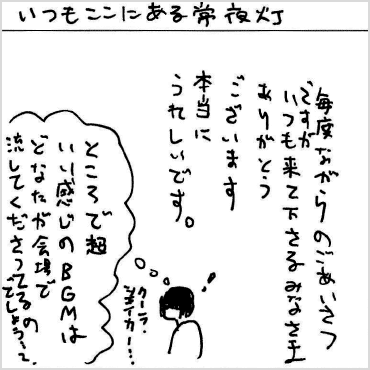 いつもここにある常夜灯
毎度ながらのごあいさつ
ですが
いつも来て下さるみなさま
ありがとう
ございます
本当に
うれしいです。
ところで超
いい感じのBGMは
どなたが会場で
流してくださってるの
でしょう〜。
クーラ
シェイカー…